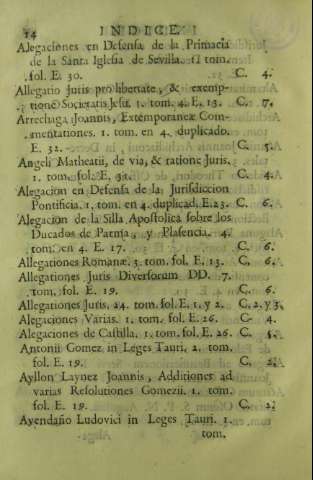 14 INDICE.
Alegaciones en Defensa de la Primacia
de la Santa Iglesia de Sevilla. 11 tom.
fol. E. 30. C. 4.
Allegatio Juris pro libertate, & exemp-
tione Societatis Jesu. 1. tom. 4. E. 13. C. 7.
Arrechaga Joannis, Extemporaneæ Com-
mentationes. 1. tom. en 4. duplicado.
E. 32. C. 5.
Angeli Matheatii, de via, & ratione Juris.
1. tom. fol. E. 30. C. 4.
Alegacion en Defensa de la Jurisdiccion
Pontificia. 1. tom. en 4. duplicad. E.23. C. 6.
Alegacion de la Silla Apostolica sobre los
Ducados de Parma, y Plasencia. 4.
tom. en 4. E. 17. C. 6.
Allegationes Romanæ. 3. tom. fol. E. 13. C. 6.
Allegationes Juris Diversorum DD. 7.
tom. fol. E. 19. C. 6.
Allegationes Juris. 24. tom. fol. E. 1. y 2. C. 2. y 3.
Alegaciones Varias. 1. tom. fol. E. 26. C. 4.
Alegaciones de Castilla. 1. tom. fol. E. 26. C. 5.
Antonii Gomez in Leges Tauri. 2. tom.
fol. E. 19. C. 2.
Ayllon Laynez Joannis, Additiones ad
varias Resolutiones Gomezii. 1. tom.
fol. E. 19. C. 2.
Avendaño Ludovici in Leges Tauri. 1.
tom.